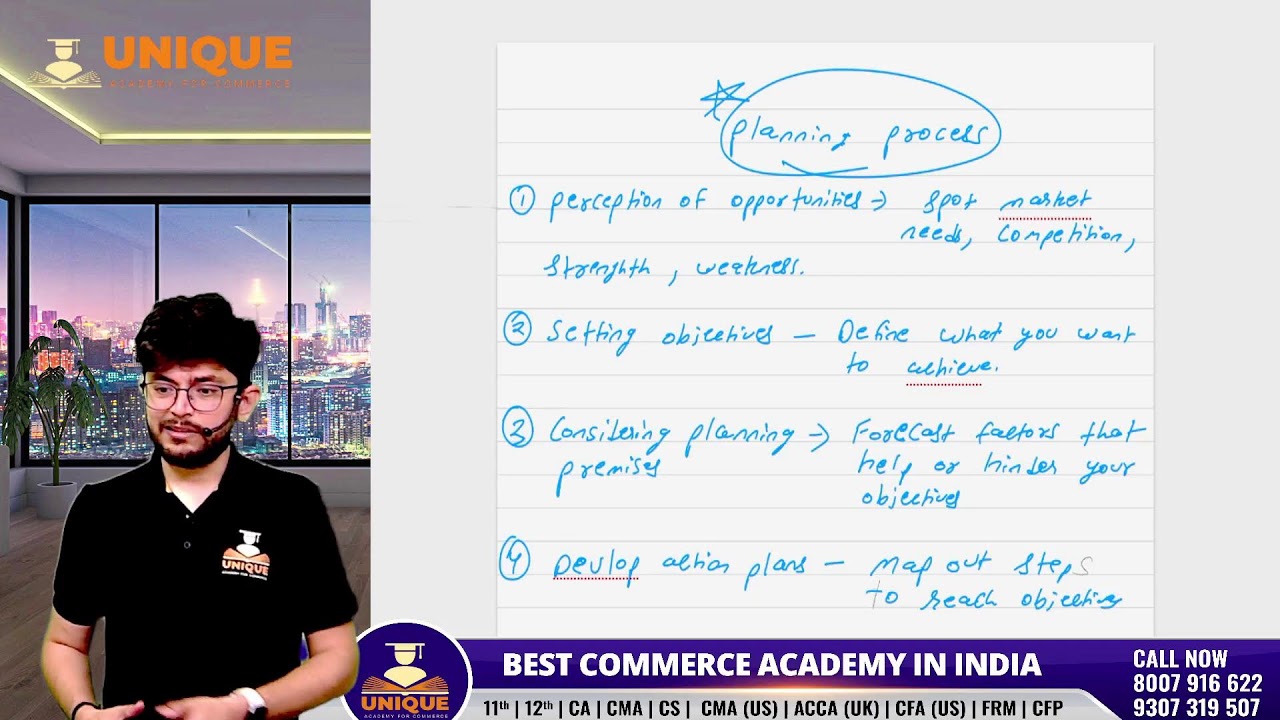 UNIQUE
ACADEMY FOR COMMERCE
planning process
① perception of opportunities → spot market
needs, competition,
strenghth, weakness.
② Setting objectives – Define what you want
to achieve.
③ Considering planning → Forecast factors that
premises help or hinder your
objectives
④ Devlop action plans – Map out steps
to reach objectives
UNIQUE
ACADEMY FOR COMMERCE
UNIQUE
ACADEMY FOR COMMERCE
BEST COMMERCE ACADEMY IN INDIA
11th | 12th | CA | CMA | CS | CMA (US) | ACCA (UK) | CFA (US) | FRM | CFP
CALL NOW
8007 916 622
9307 319 507